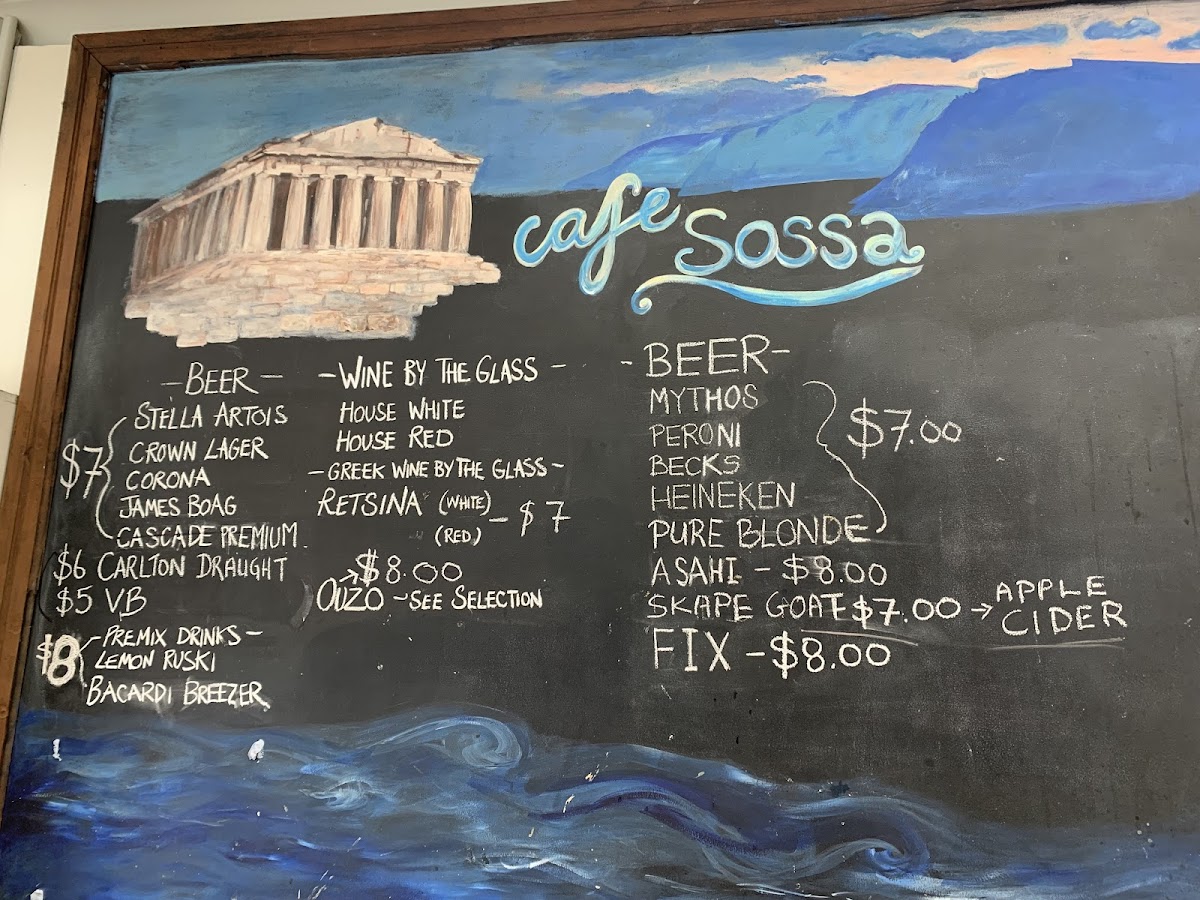 cafe sossa
- BEER -
STELLA ARTOIS
$7 CROWN LAGER
CORONA
JAMES BOAG
CASCADE PREMIUM
$6 CARLTON DRAUGHT
$5 VB
- PREMIX DRINKS -
$8 LEMON RUSKI
BACARDI BREEZER
- WINE BY THE GLASS -
HOUSE WHITE
HOUSE RED
- GREEK WINE BY THE GLASS -
RETSINA (WHITE)
(RED) - $7
→ $8.00
OUZO - SEE SELECTION
- BEER -
MYTHOS
PERONI $7.00
BECKS
HEINEKEN
PURE BLONDE
ASAHI - $8.00
SKAPE GOAT $7.00 → APPLE CIDER
FIX - $8.00